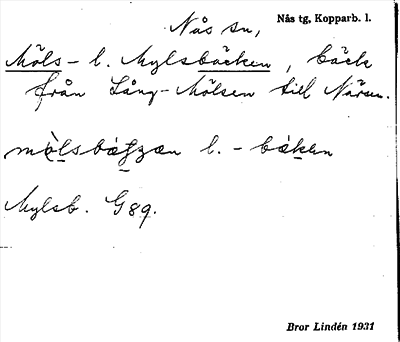 Nås sn,
Nås tg, Kopparb. l.
Möls- l. Mylsbäcken, bäck
från Lång-Mölsen till Nåsen.
l. - bäken
Mylsb. G89.
Bror Lindén 1931